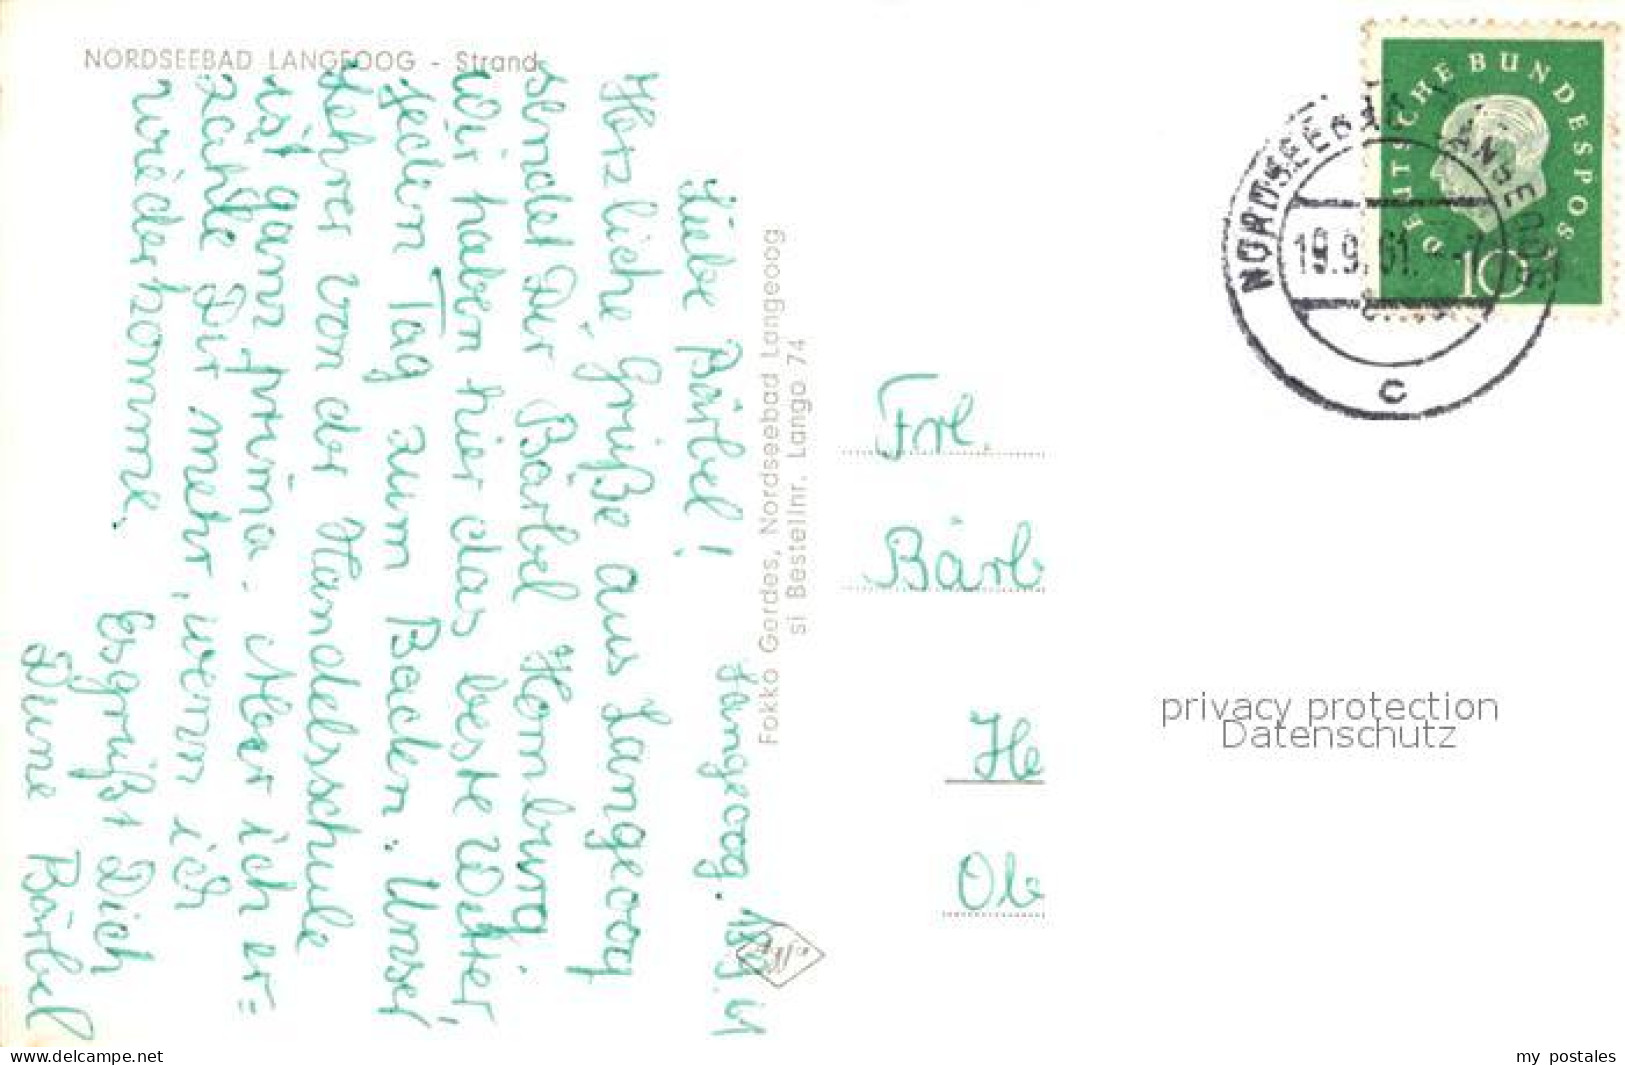 NORDSEEBAD LANGEOOG - Strand
Langeoog. 18.9.61
Liebe Bärbel!
Herzliche Grüße aus Langeoog
sendet Dir Bärbel Homburg
Wir haben hier das beste Wetter,
jeden Tag zum Baden. Unser
Lehrer von der Handelsschule
ist ganz prima. Aber ich er=
zähle Dir mehr, wenn ich
wiederkomme.
Es grüßt Dich
Deine Bärbel
Fokko Gerdes, Nordseebad Langeoog
si Bestellnr. Lango 74
DEUTSCHE BUNDESPOST
10
NORDSEEBAD LANGEOOG
19.9.61.
c
Frl.
Bärb
He
Ole
privacy protection
Datenschutz
www.delcampe.net
my_postales